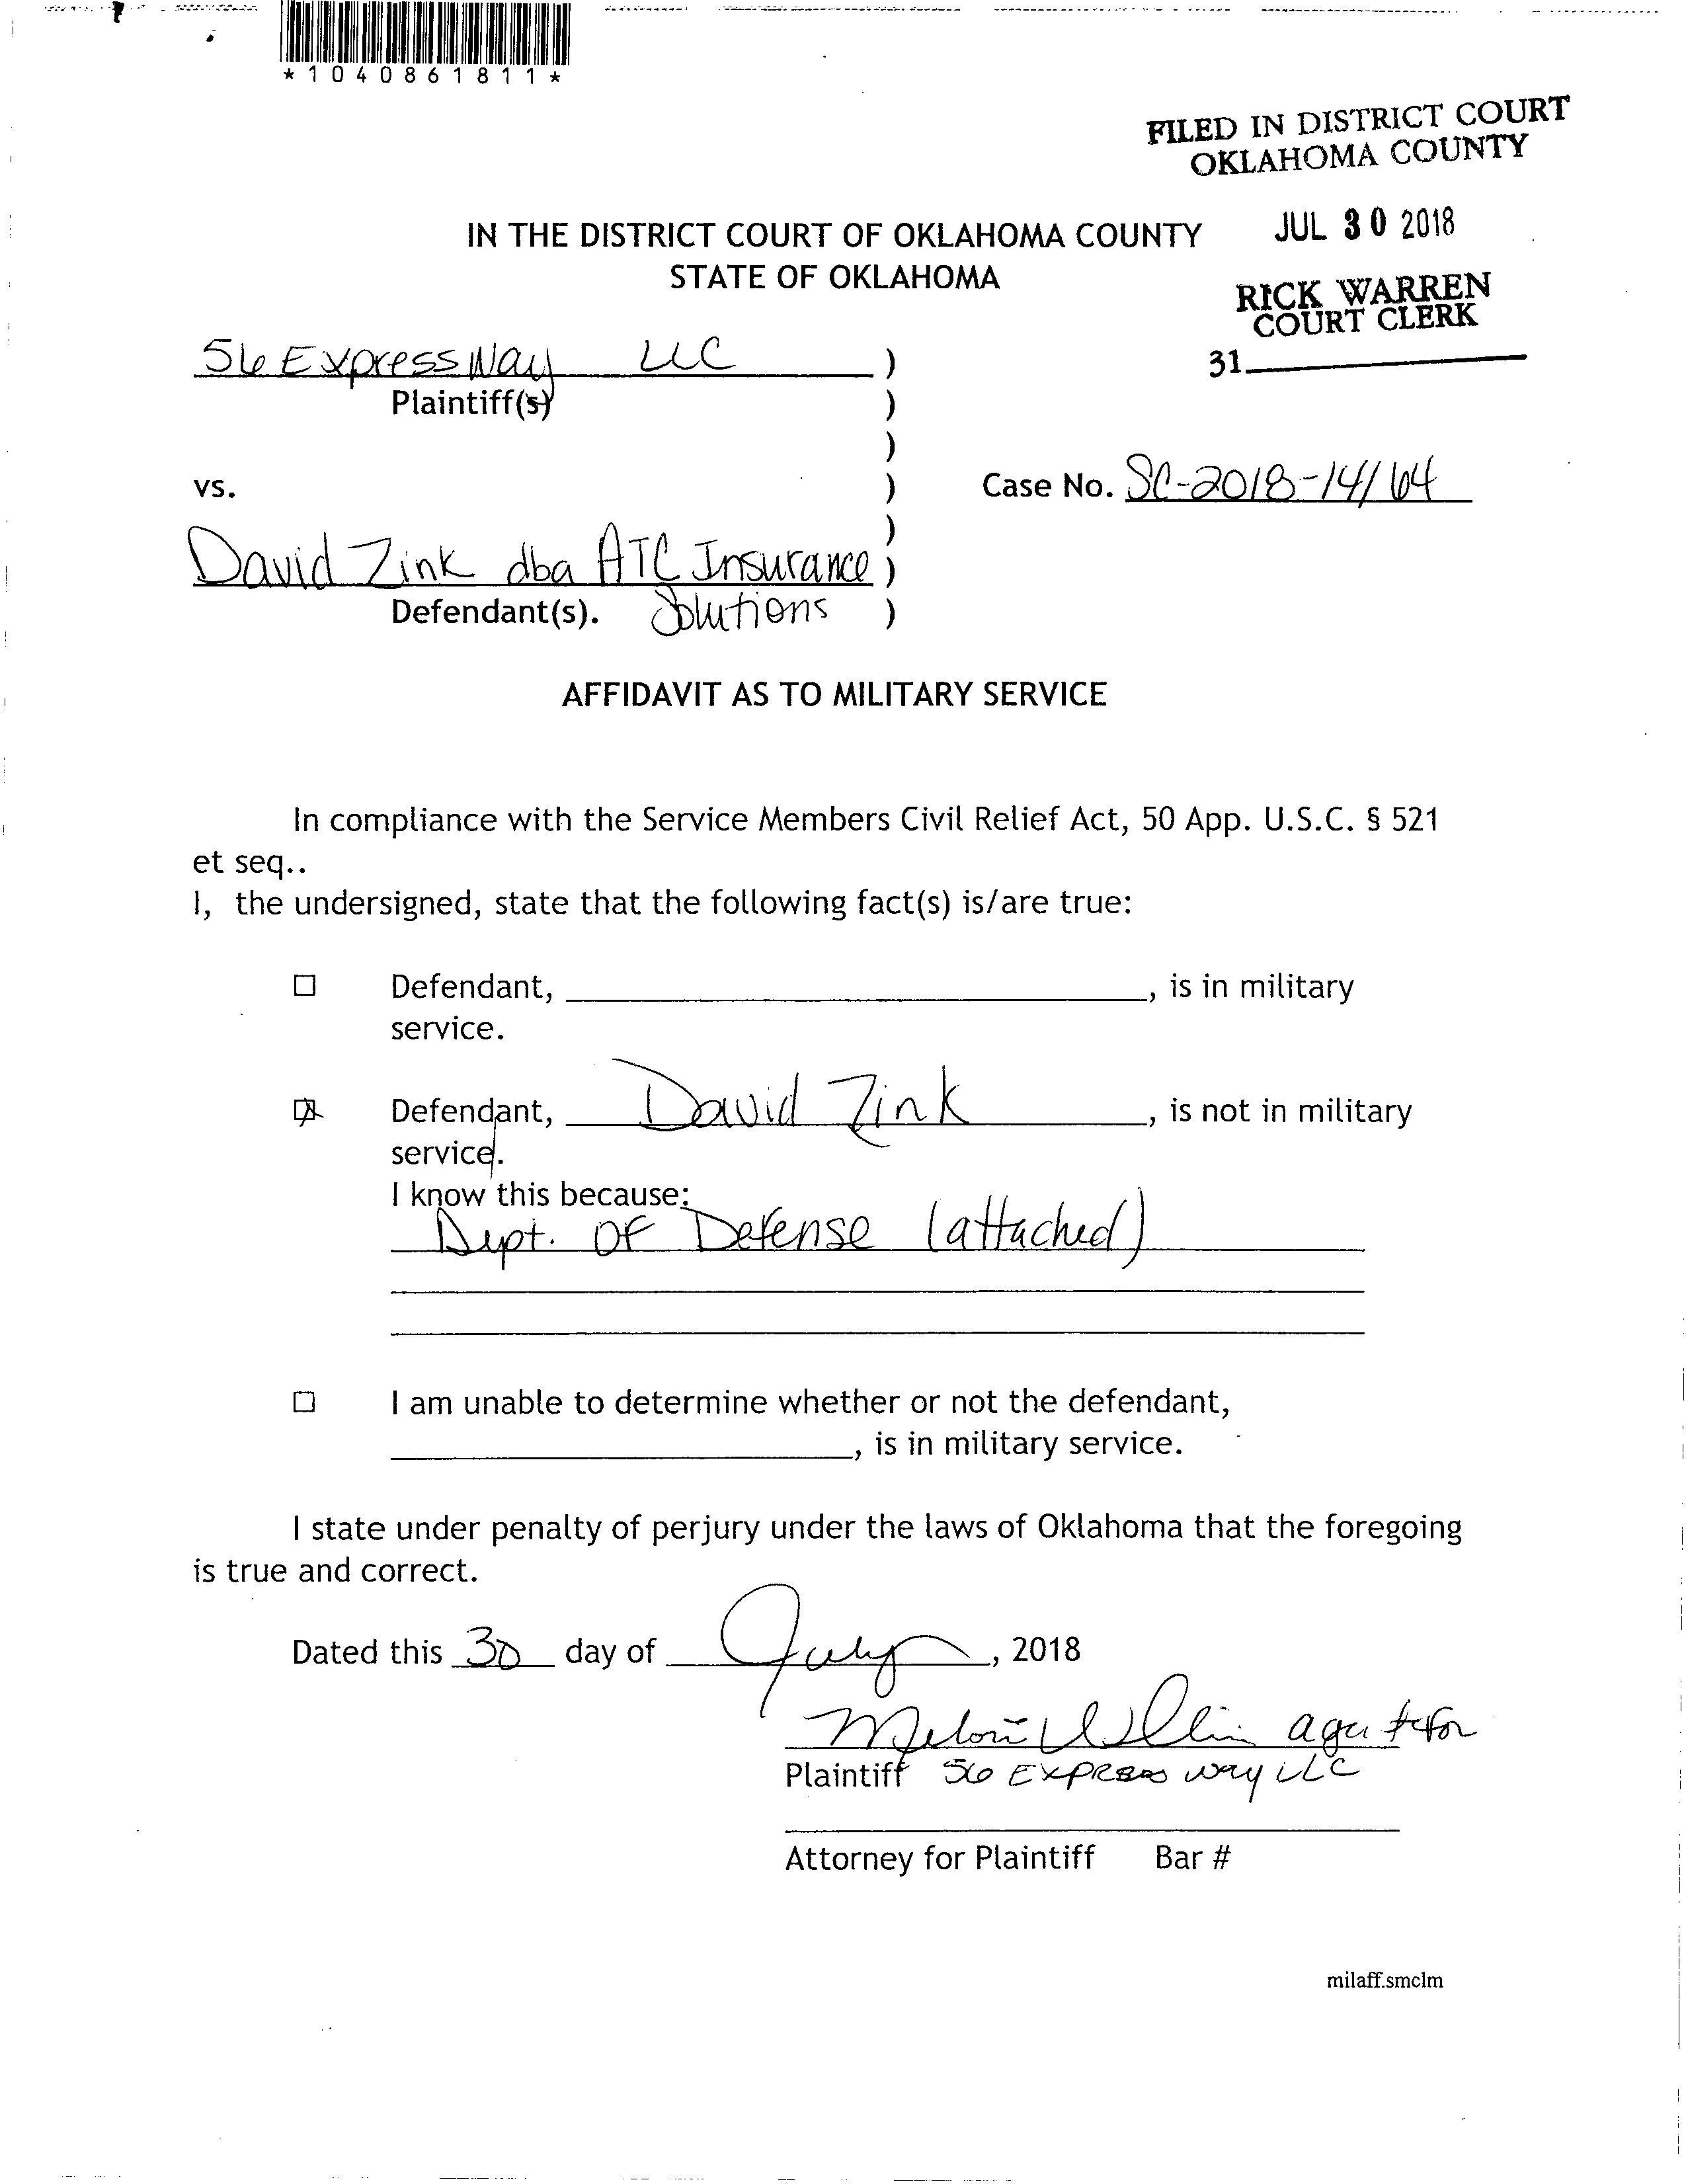 *1040861811*
FILED IN DISTRICT COURT
OKLAHOMA COUNTY
JUL 30 2018
RICK WARREN
COURT CLERK
31
IN THE DISTRICT COURT OF OKLAHOMA COUNTY
STATE OF OKLAHOMA
56 Expressway LLC )
Plaintiff(s) )
)
vs. ) Case No. SC-2018-14164
)
David Zink dba ATC Insurance )
Defendant(s). Solutions )
AFFIDAVIT AS TO MILITARY SERVICE
In compliance with the Service Members Civil Relief Act, 50 App. U.S.C. § 521
et seq..
I, the undersigned, state that the following fact(s) is/are true:
☐ Defendant, , is in military
service.
☒ Defendant, David Zink, is not in military
service.
I know this because:
Dept. of Defense (attached)
☐ I am unable to determine whether or not the defendant,
, is in military service.
I state under penalty of perjury under the laws of Oklahoma that the foregoing
is true and correct.
Dated this 30 day of July, 2018
agent for
Plaintiff 56 Expressway LLC
Attorney for Plaintiff Bar #
milaff.smclm